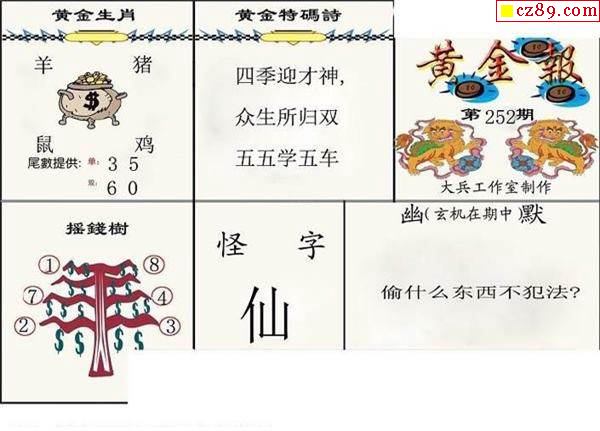 cz89.com
黄金生肖
羊 猪
$
鼠 鸡
尾數提供: 单: 3 5
双: 6 0
黄金特碼詩
四季迎才神,
众生所归双
五五学五车
黄金報
第252期
大兵工作室制作
摇錢樹
① ⑧
⑦ ④
② ③
怪 字
仙
幽(玄机在期中)默
偷什么东西不犯法?